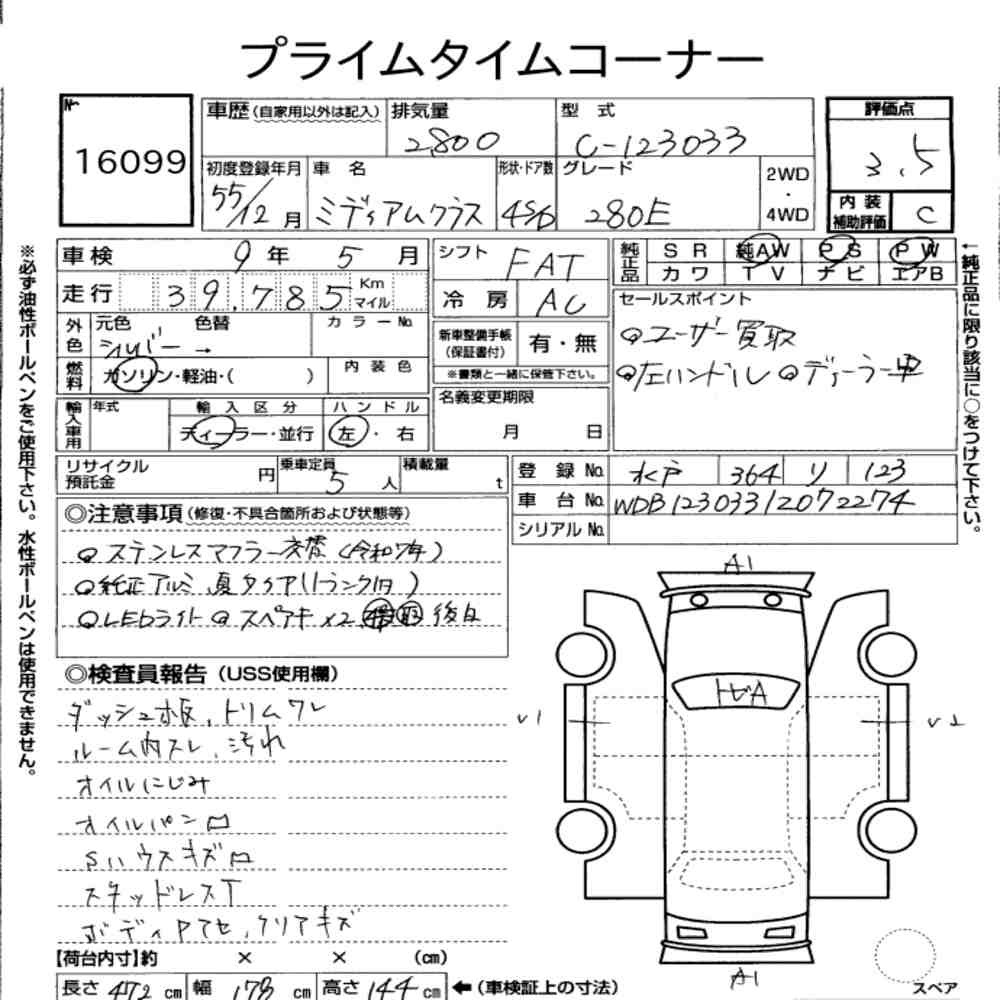 プライムタイムコーナー
№ 16099
車歴(自家用以外は記入) 排気量 2,800 型式 C-123033
評価点 3.5
初度登録年月 55/12月 車名 ミディアムクラス 形状・ドア数 4SD グレード 280E 2WD・4WD
内装補助評価 C
※必ず油性ボールペンをご使用下さい。水性ボールペンは使用できません。
車検 9年 5月
走行 39,785 Km マイル
外色 元色 シルバー 色替 → カラーNo.
燃料 ガソリン・軽油・( ) 内装色
輸入車用 年式 輸入区分 ディーラー・並行 ハンドル 左・右
シフト FAT
冷房 AC
新車整備手帳(保証書付) 有・無
※書類と一緒に保管下さい。
名義変更期限 月 日
純正品 SR 純AW PS PW
カワ TV ナビ エアB
セールスポイント
◎ユーザー買取
◎左ハンドル ◎ディーラー車
←純正品に限り該当に○をつけて下さい。
リサイクル預託金 円 乗車定員 5人 積載量 t
登録No. 水戸 364 リ 123
車台No. WDB12303312072274
シリアルNo.
◎注意事項(修復・不具合箇所および状態等)
◎ステンレスマフラー交換(令和7年)
◎純正アルミ 夏タイヤ(トランク内)
◎LEDライト ◎スペアキー×2 後日
◎検査員報告(USS使用欄)
ダッシュ板、トリムワレ
ルーム内スレ、汚れ
オイルにじみ
オイルパン凹
Sハウスキズ凹
スタッドレスT
ボディアセ、クリアキズ
A1
トビA
U1
U2
A1
スペア
【荷台内寸】約 × × (cm)
長さ 472 cm 幅 178 cm 高さ 144 cm ←(車検証上の寸法)